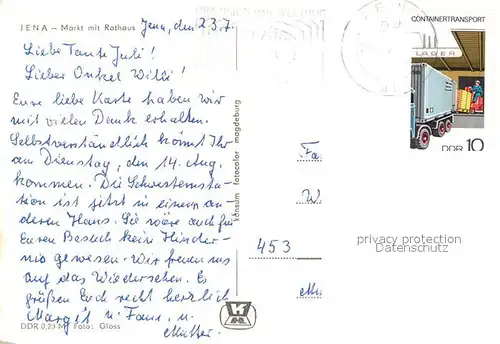 JENA – Markt mit Rathaus
Jena, den 23.7.
Liebe Tante Juli!
Lieber Onkel Willi!
Eure liebe Karte haben wir
mit vielen Dank erhalten.
Selbstverständlich könnt Ihr
am Dienstag, den 14. Aug.
kommen. Die Schwesternsta-
tion ist jetzt in einem an-
deren Haus. Sie wäre auch für
Euren Besuch kein Hinder-
nis gewesen. Wir freuen uns
auf das Wiedersehen. Es
grüßen Euch recht herzlich
Margit u. Fam. u.
Mutter.
DDR 0,20 M Foto: Gloss
fotocolor magdeburg
CONTAINERTRANSPORT
LAGER
DDR 10
Fa
W
453
privacy protection
Datenschutz